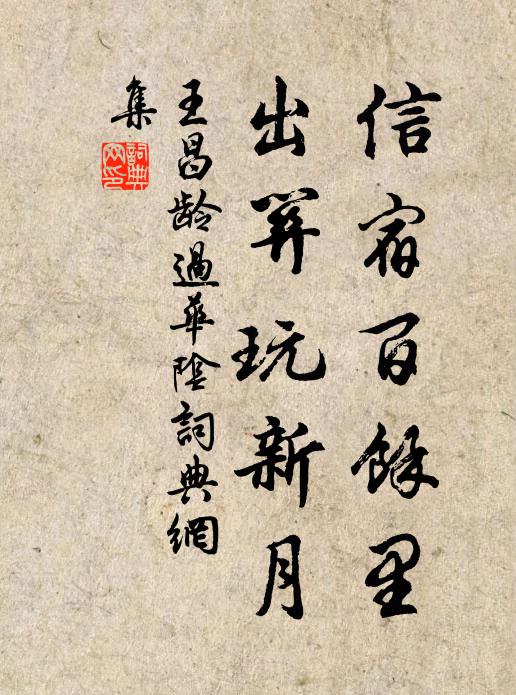 信宿百餘里
出關玩新月
王昌齡過華陰詞典網
集
詞典
网印